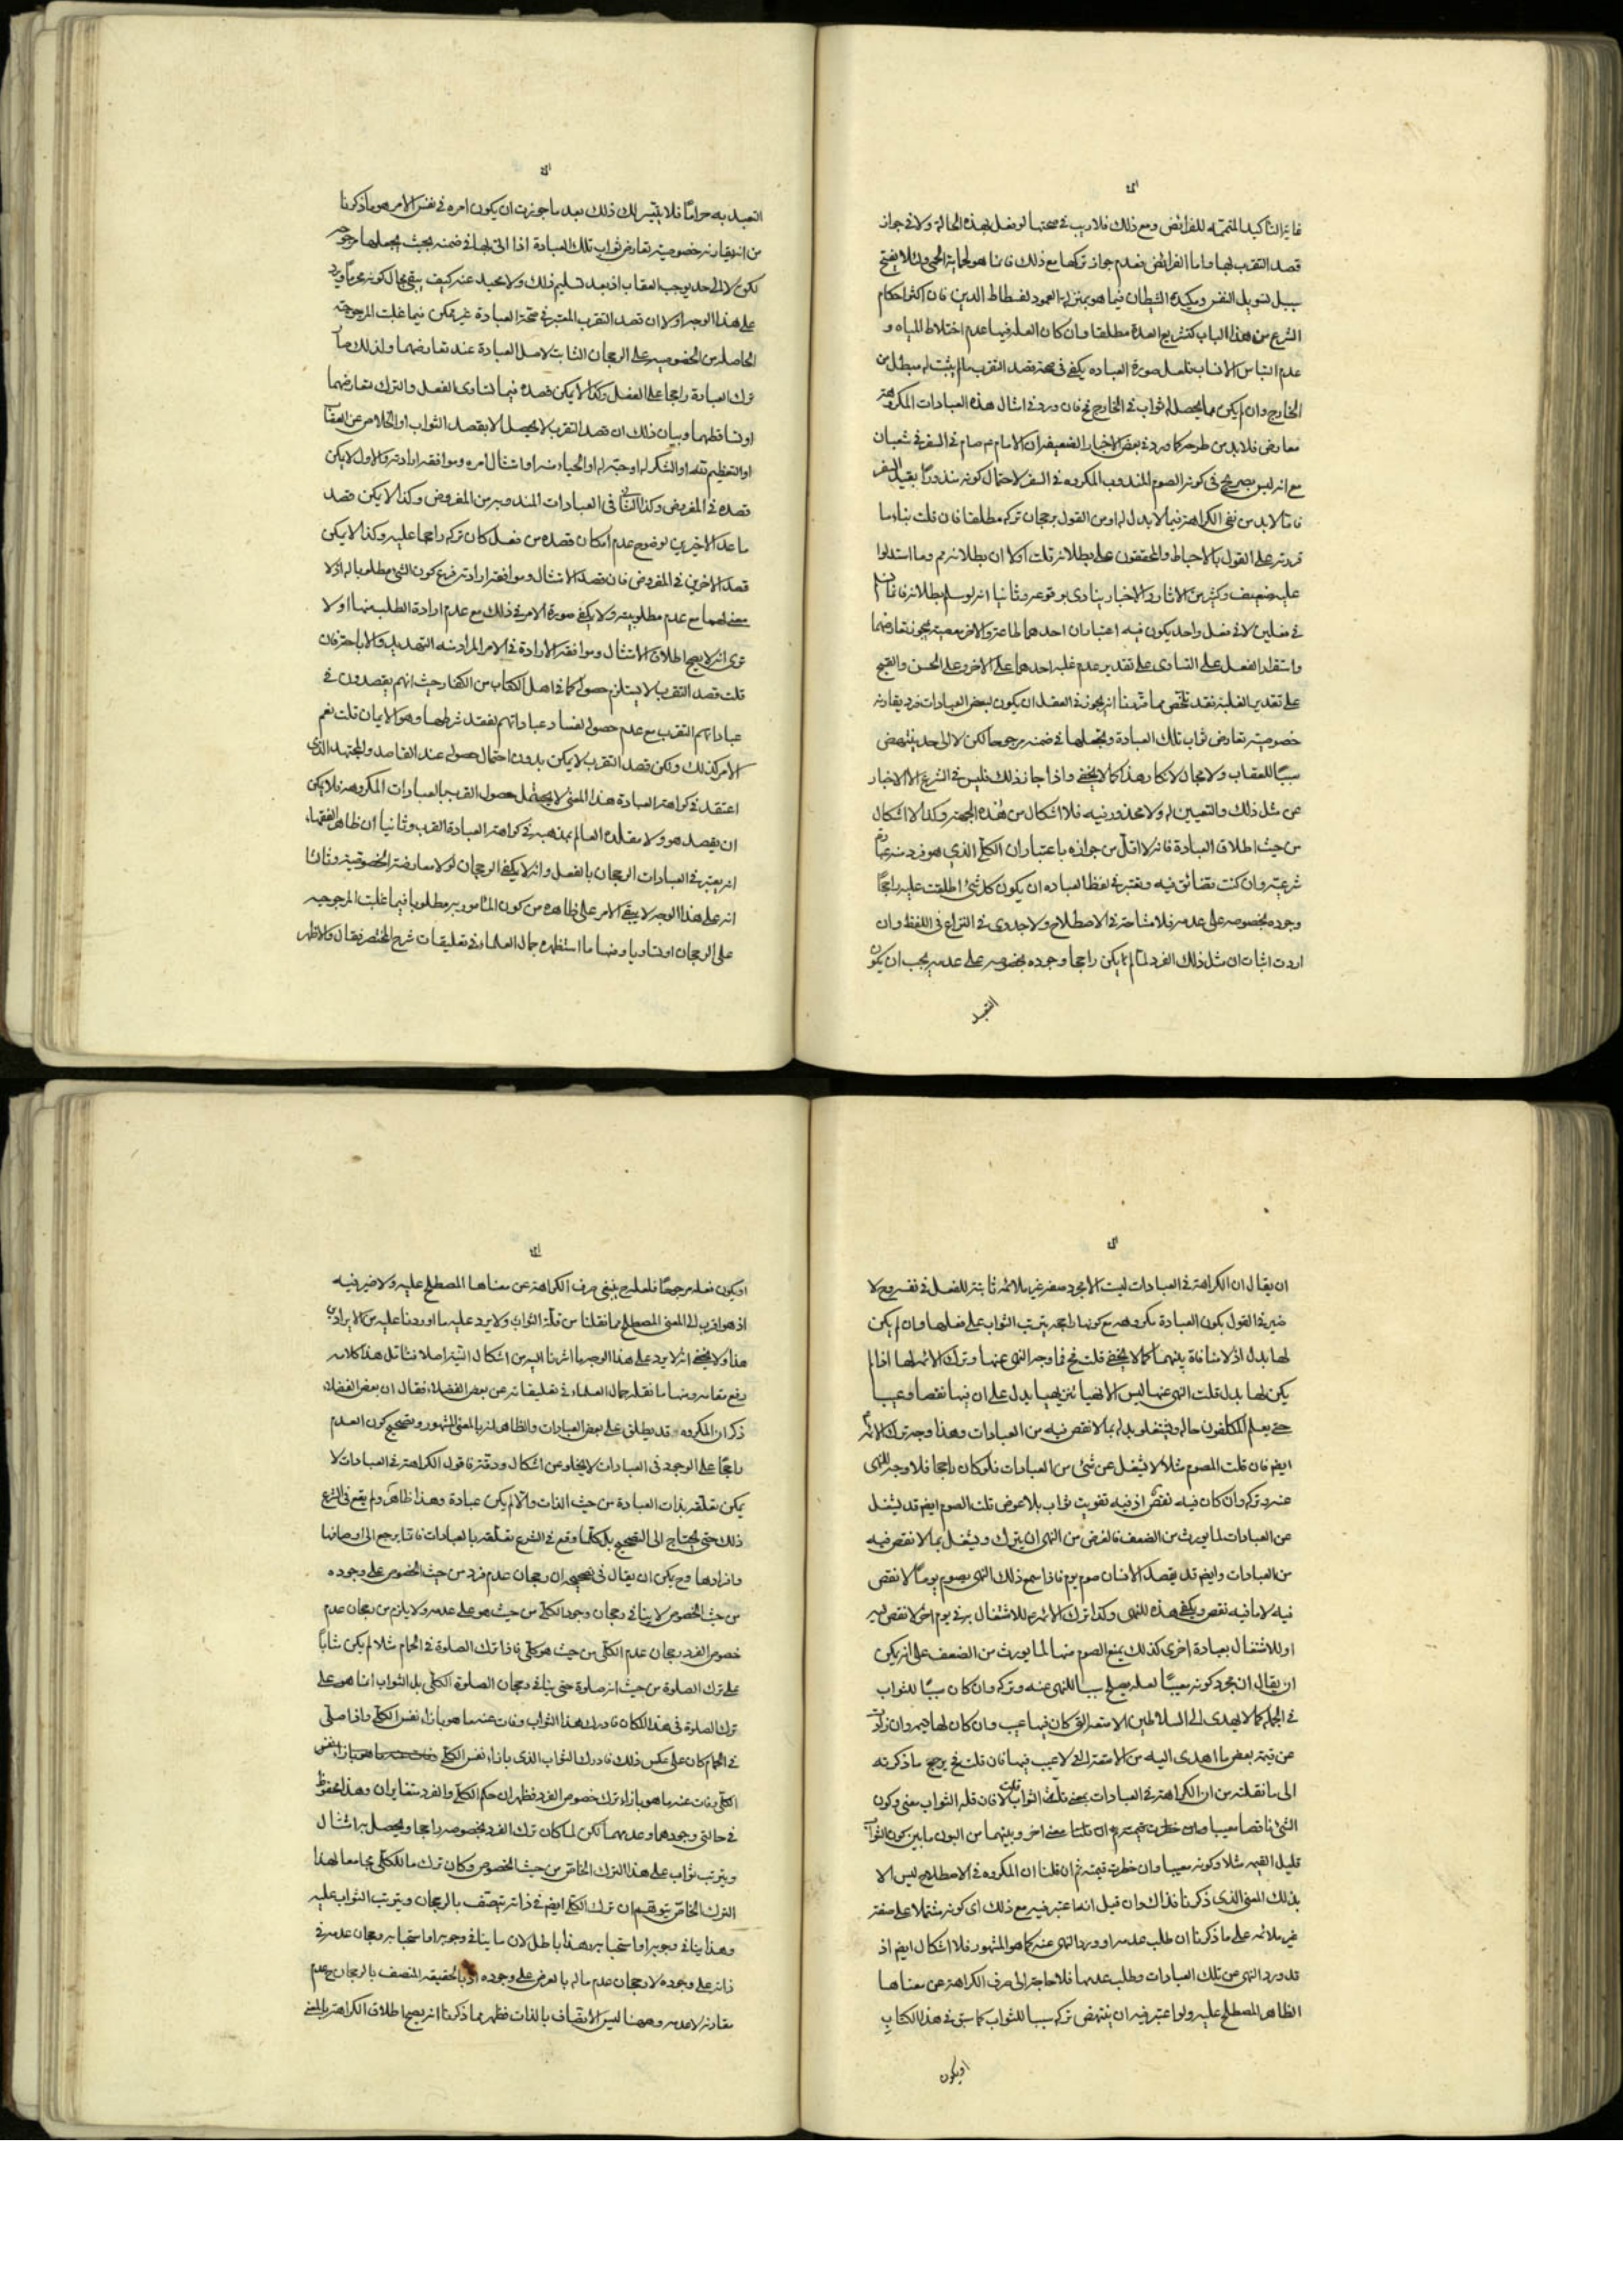 غاية التأكيد المتممة للفرائض ومع ذلك فلا ريب في صحتها لو فعل بهذه الحالة ولا في جواز
قصد التقرب بها واما الفرائض فعدم جواز تركها مع ذلك فانما هو لحماية الحمى ولئلا يفتح
سبيل لتسويل النفس ومكيدة الشيطان فيما هو بمنزلة العمود لفسطاط الدين فان اكثر احكام
الشرع من هذا الباب كتشريع العدة مطلقا وان كان العلة فيها عدم اختلاط المياه و
عدم التباس الانساب فلعل صورة العباده يكفي في صحة قصد التقرب ما لم يثبت له مبطل من
الخارج وان لم يكن مما يحصل له ثواب في الخارج فح فان ورد في امثال هذه العبادات المكروهة
معارض فلا بد من طرحه كما ورد في بعض الاخبار الضعيفة ان الامام م صام في السفر في شعبان
مع انه ليس بصريح في كونه الصوم المندوب المكروه في السفر لاحتمال كونه منذورا بقيد السفر
فاما لا بد من نفي الكراهة فيما لا بدل له او من القول برجحان تركه مطلقا فان قلت بناء ما
قررته على القول بالاحباط والمحققون على بطلانه قلت اولا ان بطلانه مم وما استدلوا
عليه ضعيف وكثير من الاثار والاخبار ينادى بوقوعه وثانيا انه لو سلم بطلانه فانما
في فعلين لا في فعل واحد يكون فيه اعتباران احدهما طاعة والاخر معصية يجوز تعارضهما
واستقرار الفعل على التساوى على تقدير عدم غلبة احدهما على الاخر وعلى الحسن والقبح
على تقدير الغلبة فقد تلخص مما قدمنا انه يجوز في العقل ان يكون لبعض العبادات فرد يقارنه
خصوصية تعارض ثواب تلك العبادة وتجعلها في ضمنه مرجوحا لكن لا الى حد ينتهض
سببا للعقاب ولا مجال لانكار هذا كما لا يخفى واذا جاز ذلك فليس في الشرع الا الاخبار
عن مثل ذلك والتعيين له ولا محذور فيه فلا اشكال من هذه الجهة وكذا لا اشكال
من حيث اطلاق العبادة فانه لا اقل من جوازه باعتبار ان الكلى الذي هو فرد منه عبادة
شرعية وان كنت تضائق فيه وتعتبر في لفظ العباده ان يكون كل شئ اطلقت عليه راجحا
وجوده بخصوصه على عدمه فلا مشاحة في الاصطلاح ولا جدوى في النزاع في اللفظ وان
اردت اثبات ان مثل ذلك الفرد لما لم يكن راجحا وجوده بخصوصه على عدمه يجب ان يكون
التعبد
التعبد به حراما فلا يتيسر لك ذلك بعد ما جوزت ان يكون امره في نفس الامر هو ما ذكرنا
من انه يقارنه خصوصية تعارض ثواب تلك العبادة اذا اتى بها في ضمنه بحيث يجعلها مرجوحة
لكن لا الى حد يوجب العقاب اذ بعد تسليم ذلك ولا محيد عنه كيف يبقى مجال كونه محرما ويرد
على هذا الوجه اولا ان قصد التقرب المعتبر في صحة العبادة غير ممكن فيما غلبت المرجوحية
الحاصلة من الخصوصية على الرجحان الثابت لاصل العبادة عند تعارضهما ولذلك صار
ترك العبادة راجحا على الفعل وكذا لا يمكن قصده فيما تساوى الفعل والترك بتعارضهما
او تساقطهما وبيان ذلك ان قصد التقرب لا يحصل الا بقصد الثواب او الخلاص من العقاب
او التعظيم لله او الشكر له او حبه له او الحياء منه او امتثال امره وموافقة ارادته والاول لا يمكن
قصده في المفروض وكذا الثاني في العبادات المندوبة من المفروض وكذا لا يمكن قصد
ما عدا الاخيرين لوضوح عدم امكان قصده من فعل كان تركه راجحا عليه وكذا لا يمكن
قصد الاخرين في المفروض فان قصد الامتثال وموافقة ارادته فرع كون الشئ مطلوبا له اذ لا
معنى لهما مع عدم مطلوبيته ولا يكفي صورة الامر في ذلك مع عدم ارادة الطلب منها اولا
ترى انه لا يصح اطلاق الامتثال وموافقة الارادة في الامر المراد منه التهديد والاباحة فان
قلت قصد التقرب لا يستلزم حصوله كما في اهل الكتاب من الكفار حيث انهم يقصدون في
عباداتهم التقرب مع عدم حصوله لفساد عباداتهم لفقد شرطها وهو الايمان قلت نعم
الامر كذلك ولكن قصد التقرب لا يمكن بدون احتمال حصوله عند القاصد والمجتهد الذي
اعتقد في كراهة العبادة هذا المعنى لا يحتمل حصول القرب بالعبادات المكروهة فلا يمكن
ان يقصد هو ولا مقلده العالم بمذهبه في كراهة العبادة القرب وثانيا ان ظاهر الفقهاء
انه يعتبر في العبادات الرجحان بالفعل وانه لا يكفي الرجحان لولا معارضة الخصوصية وثالثا
انه على هذا الوجه لا يبقى الامر على ظاهره من كون المأمور به مطلوبا فيما غلبت المرجوحية
على الرجحان او تساويا ومنها ما استظهره جمال العلماء في تعليقات شرح المختصر فقال والاظهر
ان يقال ان الكراهة في العبادات ليست الا بمجرد صفة غير ملائمة ثابتة للفعل في نفسه وح لا
ضير في القول بكون العبادة مكروهة مع كونها راجحة يترتب الثواب على فعلها وان لم يكن
لها بدل اذ لا منافاة بينهما كما لا يخفى قلت فح فما وجه النهى عنها وترك الائمة لها اذا لم
يكن لها بدل قلت النهى عنها ليس الا نهيا تنزيهيا يدل على ان فيها نقصا وعيبا
حتى يعلم المكلفون حاله ويشتغلوا بدله بما لا نقص فيه من العبادات وهذا وجه ترك الائمة
ايضم فان قلت الصوم مثلا لا يشغل عن شئ من العبادات فلو كان راجحا فلا وجه للنهى
عنه وتركه وان كان فيه نقص اذ فيه تفويت ثواب بلا عوض قلت الصوم ايضم قد يشغل
عن العبادات لما يورث من الضعف فالغرض من النهى ان يترك ويشتغل بما لا نقص فيه
من العبادات وايضم قد يقصد الانسان صوم يوم فاذا سمع ذلك النهى يصوم يوما لا نقص
فيه لا ما فيه نقص ويكفى هذه للنهى وكذا ترك الائمة م للاشتغال به في يوم اخر لا نقص فيه
او للاشتغال بعبادة اخرى كذلك يمنع الصوم منها لما يورث من الضعف على انه يمكن
ان يقال ان مجرد كونه معيبا لعله يصلح سببا للنهى عنه وتركه وان كان سببا للثواب
في الجملة كما لا يهدى الى السلاطين الامتعة التي كان فيها عيب وان كان لها قيمة وان زادت
عن قيمة بعض ما اهدى اليه من الامتعة التي لا عيب فيها فان قلت فح يرجع ما ذكرته
الى ما نقلته من ان الكراهة في العبادات بمعنى قلة الثواب قلت لا فان قلة الثواب معنى وكون
الشئ ناقصا معيبا معنى اخر وبينهما من البون ما بين كون الثوب
قليل القيمة مثلا وكونه معيبا وان خطرت قيمته ثم ان قلنا ان المكروه في الاصطلاح ليس الا
بذلك المعنى الذي ذكرنا فذاك وان قيل انما اعتبر فيه مع ذلك اى كونه مشتملا على صفة
غير ملائمة على ما ذكرنا ان طلب عدمه او ورد النهى عنه كما هو المشهور فلا اشكال ايضم اذ
قد ورد النهى عن تلك العبادات وطلب عدمها فلا حاجة الى صرف الكراهة عن معناها
الظاهر المصطلح عليه ولو اعتبر فيه ان ينتهض تركه سببا للثواب كما سبق في هذا الكتاب
او يكون
او يكون فعله مرجوحا فلعله ح ينبغي صرف الكراهة عن معناها المصطلح عليه ولا ضير فيه
اذ هو اقرب الى المعنى المصطلح مما نقلنا من قلة الثواب ولا يرد عليه ما اوردنا عليه من الايرادين
هذا ولا يخفى انه لا يرد على هذا الوجه ما اشرنا اليه من اشكال النية اصلا فتامل هذا كلامه
رفع مقامه ومنها ما نقله جمال العلماء في تعليقاته عن بعض الفضلاء فقال ان بعض الفضلاء
ذكر ان المكروه قد يطلق على بعض العبادات والظاهر انه بالمعنى المشهور وتصحيح كون العدم
راجحا على الوجود في العبادات لا يخلو عن اشكال ودقة فاقول الكراهة في العبادات لا
يمكن تعلقه بذات العبادة من حيث الذات والا لم يكن عبادة وهذا ظاهر ولم يقع في الشرع
ذلك حتى يحتاج الى التصحيح بل كلما وقع في الشرع تعلقه بالعبادات فانما يرجع الى اوصافها
وافرادها وح يمكن ان يقال في تصحيحه ان رجحان عدم فرد من حيث الخصوص على وجوده
من حيث الخصوص لا ينافي رجحان وجود الكلي من حيث هو على عدمه ولا يلزم من رجحان عدم
خصوص الفرد رجحان عدم الكلي من حيث هو كلي فاذا ترك الصلوة في الحمام مثلا لم يكن مثابا
على ترك الصلوة من حيث انه صلوة حتى ينافي رجحان الصلوة الكلي بل الثواب انما هو على
ترك الصلوة في هذا المكان فادرك هذا الثواب وفات عنه ما هو بازاء نفس الكلي واذا صلى
في الحمام كان على عكس ذلك فادرك الثواب الذي بازاء نفس الكلي
الكلي وفات عنه ما هو بازاء ترك خصوص الفرد فظهر ان حكم الكلي والفرد متغايران وهذا محفوظ
في حالتي وجودها وعدمها لكن لما كان ترك الفرد بخصوصه راجحا ويحصل به امتثال
ويترتب ثواب على هذا الترك الخاص من حيث الخصوص وكان ترك ما للكلي مجامعا لهذا
الترك الخاص يتوهم ان ترك الكلي ايضم في ذاته يتصف بالرجحان ويترتب الثواب عليه
وهذا ينافي وجوبه او استحبابه وهذا باطل لان ما ينافي وجوبه او استحبابه رجحان عدمه في
ذاته على وجوده لا رجحان عدم ماله بالعرض على وجوده اذ بالحقيقة المتصف بالرجحان ح عدم
مقارنه لا عدمه وههنا ليس الاتصاف بالذات فظهر مما ذكرنا انه يصح اطلاق الكراهة بالمعنى